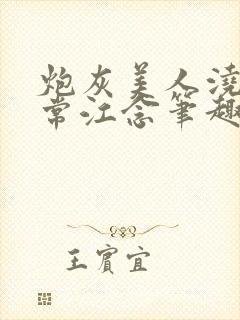 炮灰美人浇
常江念笔趣
王宾宜